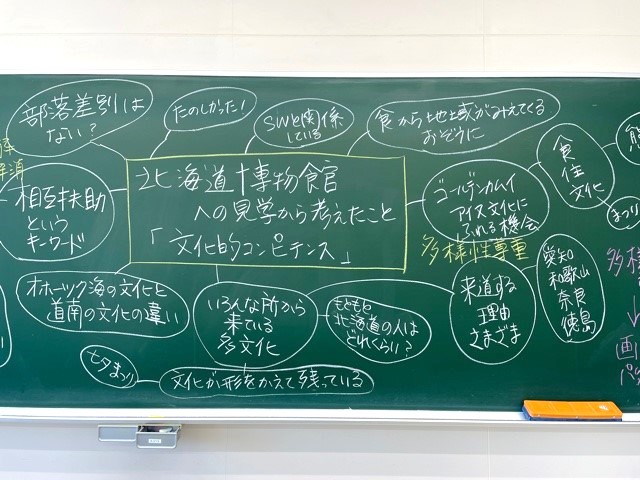 部落差別は
ない？
たのしかった！
SWと関係
している
食から地域がみえてくる
おぞうに
食
住
文化
相互扶助
という
キーワード
北海道博物館
への見学から考えたこと
「文化的コンピテンス」
ゴールデンカムイ
アイヌ文化に
ふれる機会
多様性尊重
まつり
オホーツク海の文化と
道南の文化の違い
いろんな所から
来ている
多文化
もともと
北海道の人は
どれくらい？
来道する
理由
さまざま
愛知
和歌山
奈良
徳島
多様
七夕まつり
文化が形をかえて残っている